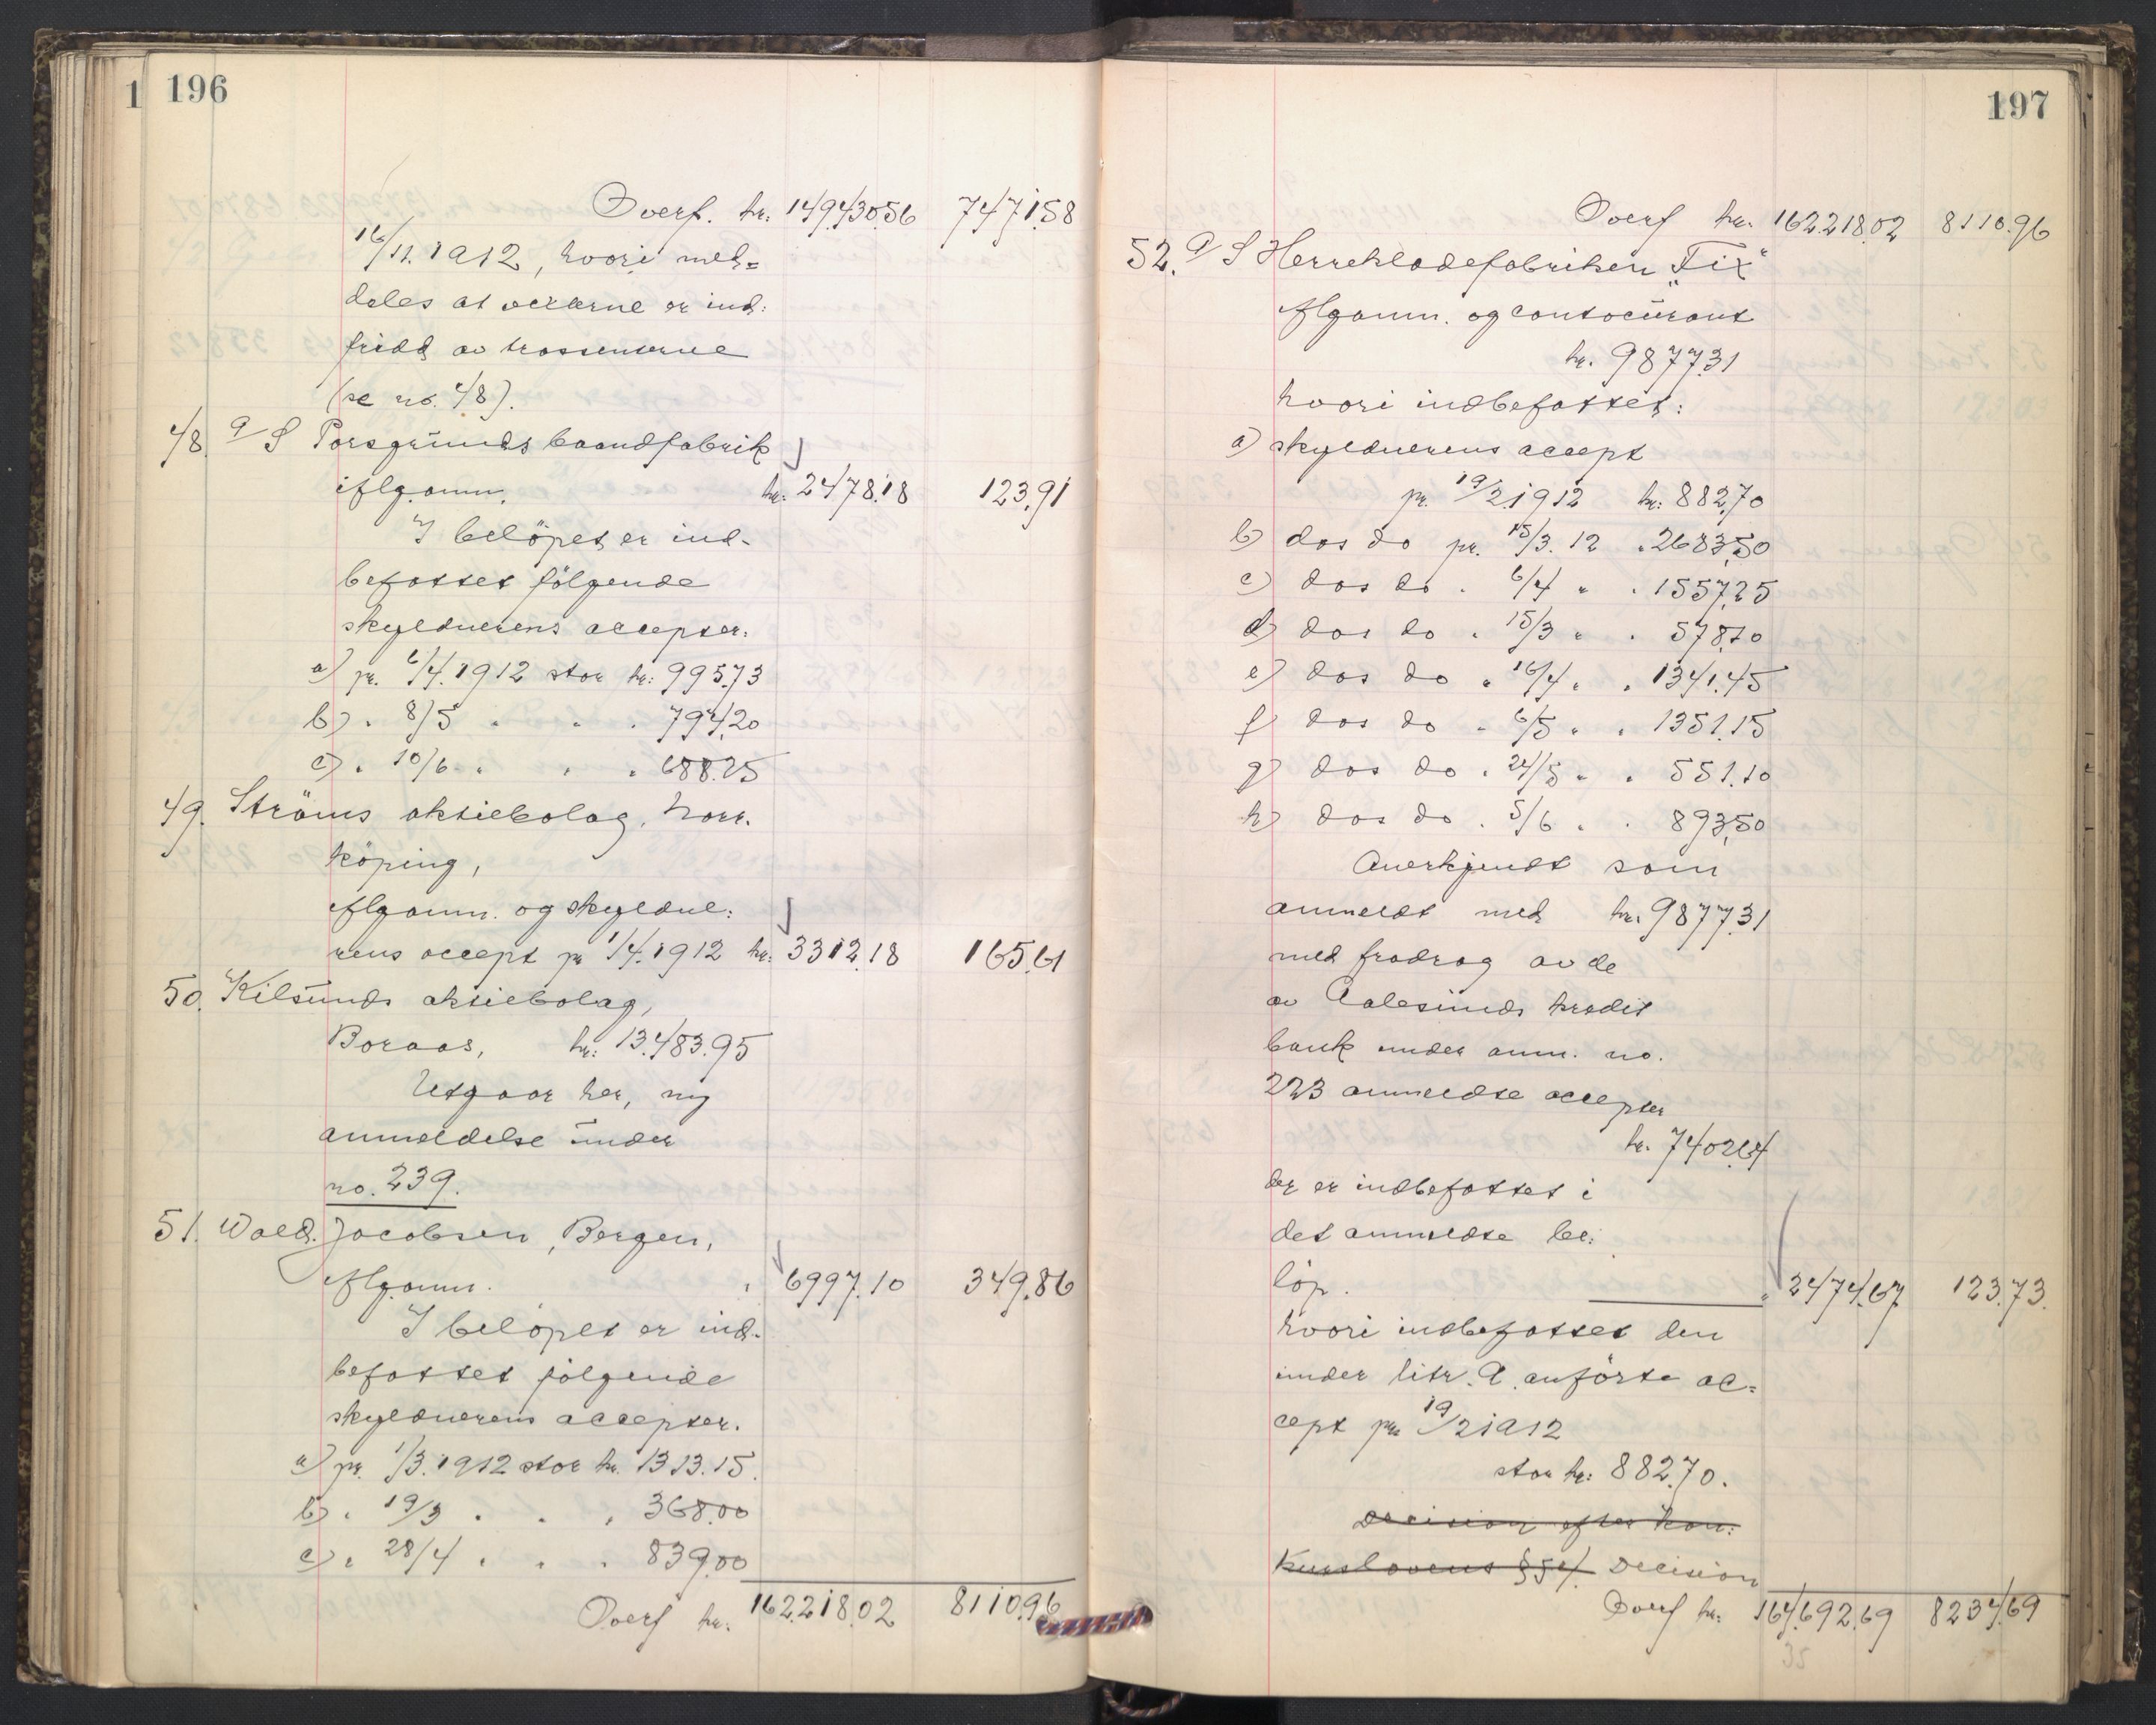 1 196
Overf. kr. 149.430.56 7471.58
16/11. 1912, hvori med=
deles at vexlerne er ind:
fridd av trassenterne
(se no. 48).
48. A/S Porsgrunds baandfabrik
iflg. anm. kr. 2478.18 123.91
I beløpet er ind-
befattet følgende
skyldnerens accepter.
a) pr. 6/4. 1912 stor kr: 995.73
b) " 8/5 " " " 794.20
c) " 10/6 " " " 688.25
49. Ströms aktiebolag, Norr-
köping,
iflg. anm. og skyldne:
rens accept pr 1/4. 1912 kr: 3312.18 165.61
50. Kilsunds aktiebolag,
Boraas, kr: 13.483.95
Utgaar her, ny
anmeldelse under
no. 239.
51. Wald. Jacobsen, Bergen,
iflg. anm. " 6997.10 349.86
I beløpet er ind-
befattet følgende
skyldnerens accepter.
a) pr. 1/3. 1912 stor kr. 1313.15.
b) " 19/3 " " " 368.00
c) " 28/4 " " " 839.00
Overf kr. 162.218.02 8110.96
197
Overf kr. 162.218.02 8110.96
52. A/S Herreklædefabriken "Fix"
iflg anm. og contocurant
kr. 9877.31
hvori indbefattet:
a) skyldnerens accept
pr. 19/2 1912 kr: 882.70
b) dos do pr. 15/3. 12 " 2683.50
c) dos do " 6/4 " " 1557.25
d) dos do " 15/3 " " 578.10
e) dos do " 16/4 " " 1341.45
f) dos do " 6/5 " " 1351.15
g) dos do " 24/5 " " 551.10
h) dos do " 5/6 " " 893.50
Anerkjendt som
anmeldt med kr. 9877.31
med fradrag av de
av Aalesunds kredit
bank under anm. no.
223 anmeldte accepter
kr. 7402.64
der er indbefattet i
det anmeldte be:
løp. " 2474.67 123.73.
hvori indbefattet den
under litr. a. anførte ac=
cept pr 19/2 1912
stor kr: 882.70.
Decision efter kon:
kurslovens § 54. Decision
Overf kr: 164.692.69 8234.69
35